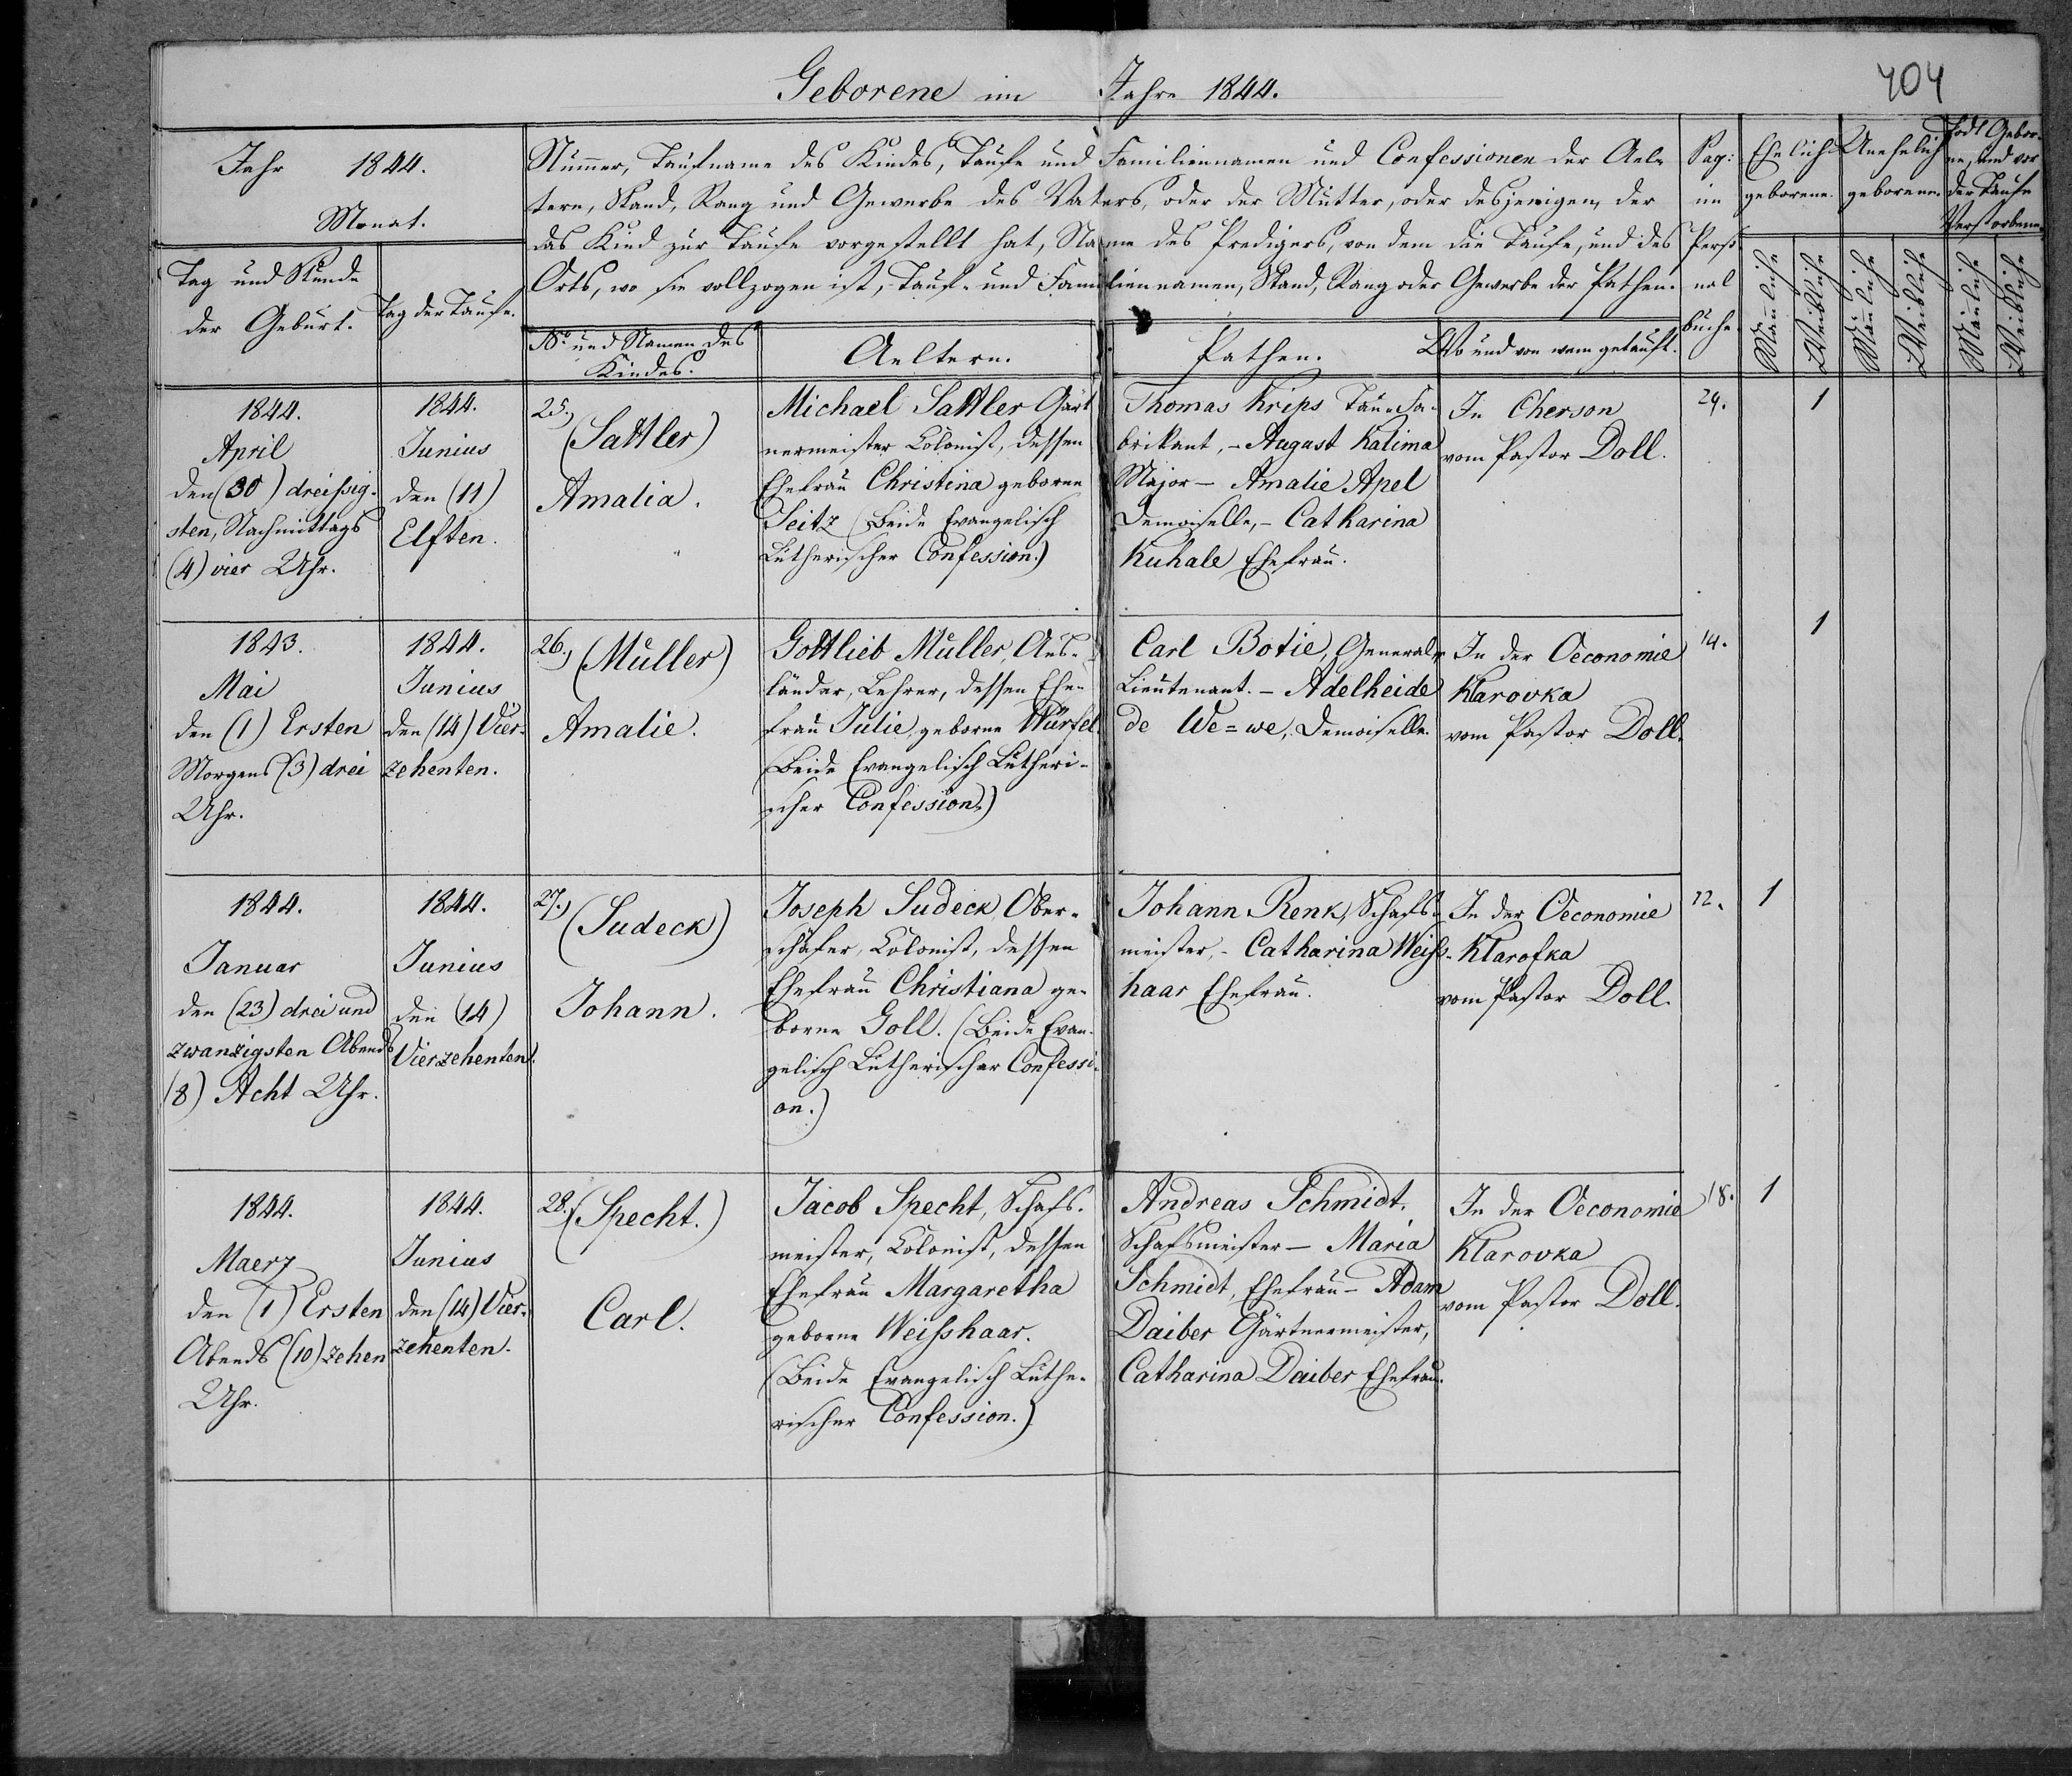 Geborene im Jahre 1844.
404
Jahr 1844.
Monat.
Tag und Stunde
der Geburt.
Tag der Taufe.
Numer, Taufname des Kindes, Taufe und Familiennamen und Confessionen der Ael-
tern, Stand, Rang und Gewerbe des Vaters, oder der Mutter, oder desjenigen, der
das Kind zur Taufe vorgestellt hat, Name des Predigers, von dem die Taufe, und des
Orts, wo sie vollzogen ist, Tauf- und Familiennamen, Stand, Rang oder Gewerbe der Pathen.
No. und Namen des
Kindes.
Aeltern.
Pathen.
Wo und von wem getauft.
Pag:
im
Perso
nal
buche.
Ehelich
geborene.
Unehelich
geborene.
Todt Gebor-
ne, und vor
der Taufe
Verstorbene.
Mänliche
Weibliche
Mänliche
Weibliche
Mänliche
Weibliche
1844.
April
den (30) dreissig-
sten, Nachmittags
(4) vier Uhr.
1844.
Junius
den (11)
Elften.
25.,
(Sattler)
Amalia.
Michael Sattler Gärt
nermeister Colonist, dessen
Ehefrau Christina geborne
Seitz (Beide Evangelisch
Lutherischer Confession.)
Thomas Krips Tau-Fa-
brikant, - August Kalima
Major - Amalie Apel
Demoiselle, - Catharina
Kuhale Ehefrau.
In Cherson
vom Pastor Doll.
29.
1
1843.
Mai
den (1) Ersten
Morgens (3) drei
Uhr.
1844.
Junius
den (14) Vier-
zehenten.
26.,
(Müller)
Amalie.
Gottlieb Müller, Aus-
länder, Lehrer, dessen Ehe-
frau Julie, geborne Würfel.
(Beide Evangelisch Lutheri-
scher Confession.)
Carl Botie, General-
Lieutenant. - Adelheide
de We=we, Demoiselle.
In der Oeconomie
Klarovka
vom Pastor Doll.
14.
1
1844.
Januar
den (23) drei und
zwanzigsten Abends
(8) Acht Uhr.
1844.
Junius
den (14)
Vierzehenten.
27.,
(Sudeck)
Johann.
Joseph Sudeck, Ober-
schäfer, Colonist, dessen
Ehefrau Christiana ge-
borne Goll. (Beide Evan-
gelisch Lutherischer Confessi-
on.)
Johann Renk, Schafs-
meister, - Catharina Weiss-
haar Ehefrau.
In der Oeconomie
Klarofka
vom Pastor Doll.
12.
1
1844.
Maerz
den (1) Ersten
Abends (10) zehen
Uhr.
1844.
Junius
den (14) Vier-
zehenten.
28.,
(Specht.)
Carl.
Jacob Specht, Schafs-
meister, Colonist, dessen
Ehefrau Margaretha
geborne Weisshaar.
(Beide Evangelisch Luthe-
rischer Confession.)
Andreas Schmidt,
Schafsmeister - Maria
Schmidt, Ehefrau - Adam
Daiber Gärtnermeister,
Catharina Daiber Ehefrau.
In der Oeconomie
Klarovka
vom Pastor Doll.
18.
1